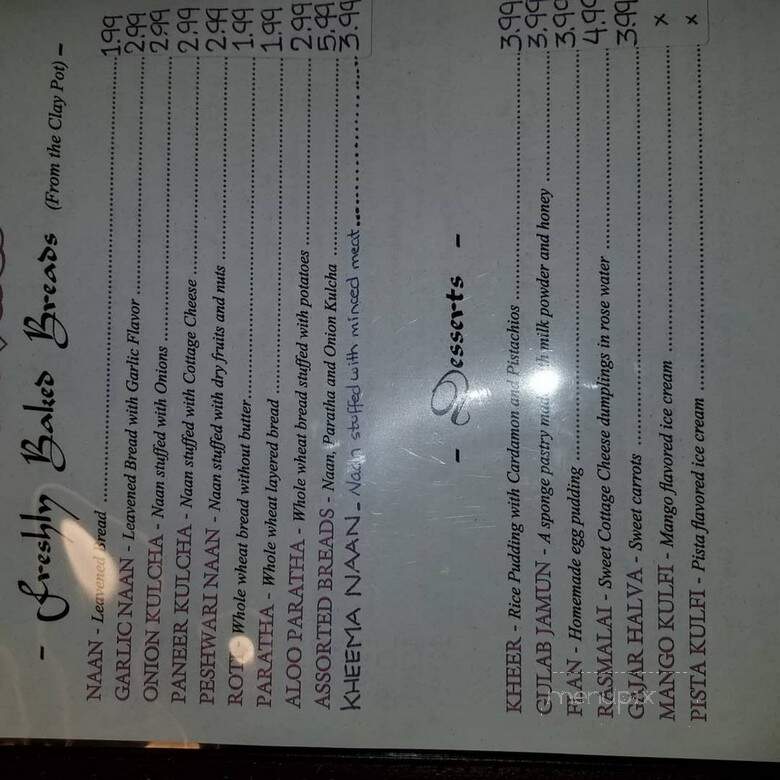 - Freshly Baked Breads (From the Clay Pot) -
NAAN - Leavened Bread 1.99
GARLIC NAAN - Leavened Bread with Garlic Flavor 2.99
ONION KULCHA - Naan stuffed with Onions 2.99
PANEER KULCHA - Naan stuffed with Cottage Cheese 2.99
PESHWARI NAAN - Naan stuffed with dry fruits and nuts 2.99
ROTI - Whole wheat bread without butter 1.99
PARATHA - Whole wheat layered bread 1.99
ALOO PARATHA - Whole wheat bread stuffed with potatoes 2.99
ASSORTED BREADS - Naan, Paratha and Onion Kulcha 5.99
KHEEMA NAAN - Naan stuffed with minced meat 3.99
- Desserts -
KHEER - Rice Pudding with Cardamon and Pistachios 3.99
GULAB JAMUN - A sponge pastry made milk powder and honey 3.99
FLAN - Homemade egg pudding 3.99
RASMALAI - Sweet Cottage Cheese dumplings in rose water 4.99
GAJAR HALVA - Sweet carrots 3.99
MANGO KULFI - Mango flavored ice cream x
PISTA KULFI - Pista flavored ice cream x
menupix